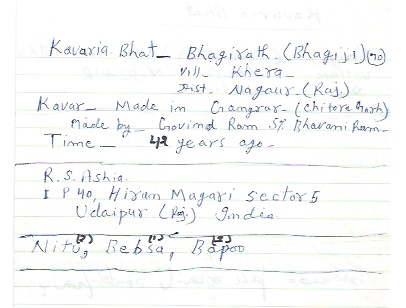 Kavaria Bhat_ Bhagirath (Bhagiji) (70)
vill_ Khera_
Dist. Nagaur_(Raj.)
Kavar_ Made in Gangrar_ (Chittorgarh)
Made by_ Govind Ram S/o Bhavani Ram_
Time_ 42 years ago_
R.S. Ashia
I P 40, Hiran Magari Sector 5
Udaipur (Raj.) India
Nitu, Bebsa, Bapoo